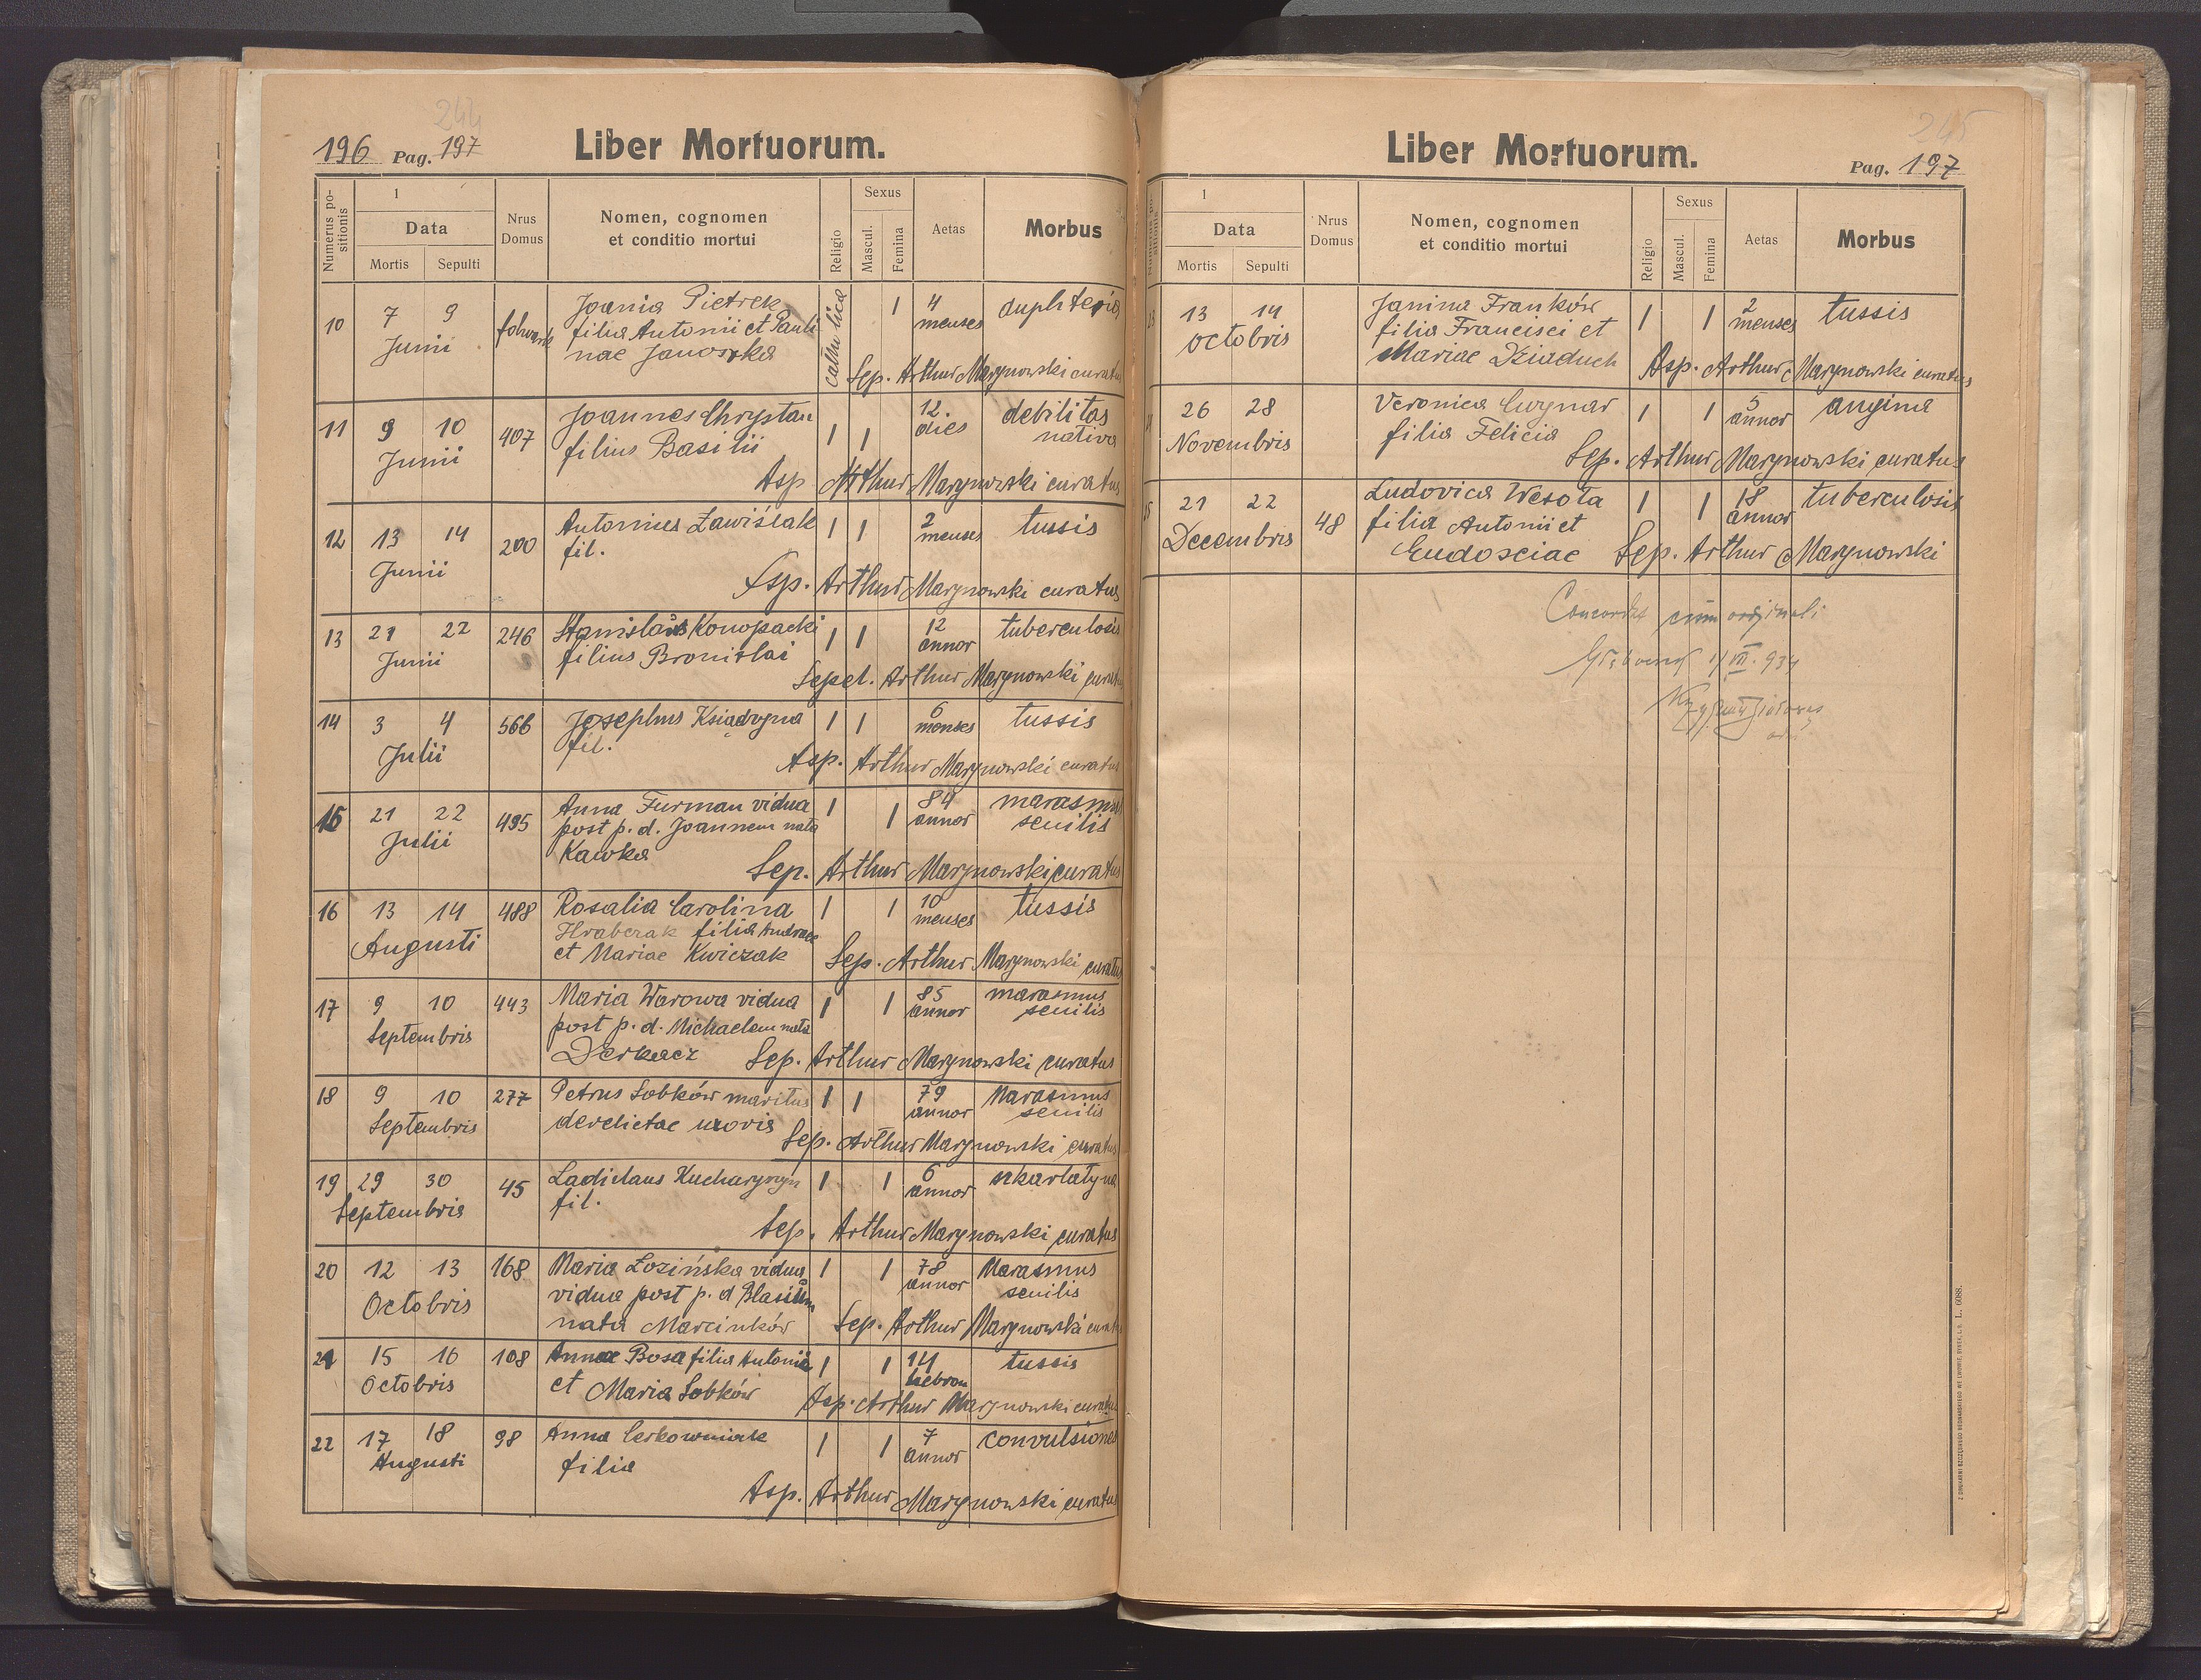 244
196 Pag. 197
Liber Mortuorum.
Numerus positionis
1
Data
Mortis Sepulti
Nrus Domus
Nomen, cognomen
et conditio mortui
Religio
Sexus
Mascul. Femina
Aetas
Morbus
10 7 9 Junii folwark
Joania Pietrek
filia Antonii et Pauli
nae Janoska
catholica 1 4 menses
Sep. Arthur Marynowski curatus
11 9 10 Junii 407
Joannes Chrystan
filius Basilii
1 1 12. dies debilitas
nativa
Asp Arthur Marynowski curatus
12 13 14 Junii 200
Antonius Zawiślak
fil.
1 1 2 menses tussis
Asp. Arthur Marynowski curatus
13 21 22 Junii 246
Stanislaus Konopacki
filius Bronislai
1 1 12 annor tuberculosis
Sepel. Arthur Marynowski curatus
14 3 4 Julii 566
Josephus Ksiądzyna
fil.
1 1 6 menses tussis
Asp. Arthur Marynowski curatus
15 21 22 Julii 495
Anna Furman vidua
post p. d. Joannem nata
Kawka
1 1 84 annor marasmus
senilis
Sep. Arthur Marynowski curatus
16 13 14 Augusti 488
Rosalia Carolina
Hraberak filia Andreae
et Mariae Kwiczak
1 1 10 menses tussis
Sep. Arthur Marynowski curatus
17 9 10 Septembris 443
Maria Warowa vidua
post p. d. Michaelem nata
Derkacz
1 1 85 annor marasmus
senilis
Sep. Arthur Marynowski curatus
18 9 10 Septembris 277
Petrus Sobków maritus
derelictae uxoris
1 1 79 annor Marasmus
senilis
Sep. Arthur Marynowski curatus
19 29 30 Septembris 45
Ladislaus Kucharyszyn
fil.
1 1 6 annor szkarlatyna
Sep. Arthur Marynowski curatus
20 12 13 Octobris 168
Maria Łozińska vidua
vidua post p. d Blasium
nata Marcinków
1 1 78 annor Marasmus
senilis
Sep. Arthur Marynowski curatus
21 15 16 Octobris 108
Annae Bosa filia Antonii
et Maria Sobków
1 1 14 hebdom tussis
Asp. Arthur Marynowski curatus
22 17 18 Augusti 98
Anna Cerkowniak
filia
1 1 7 annor convulsiones
Asp. Arthur Marynowski curatus
245
Liber Mortuorum.
Pag. 197
1
Data
Mortis Sepulti
Nrus Domus
Nomen, cognomen
et conditio mortui
Religio
Sexus
Mascul. Femina
Aetas
Morbus
13 14 octobris
Janina Franków
filia Francisci et
Mariae Dziaduch
1 1 2 menses tussis
Asp. Arthur Marynowski curatus
26 28 Novembris
Veronica Cwynar
filia Felicia
1 1 5 annor angina
Sep. Arthur Marynowski curatus
21 22 Decembris 48
Ludovica Wesoła
filia Antonii et
Eudosciae
1 1 18 annor tuberculosis
Sep. Arthur Marynowski
Concordat cum originali
VII. 934